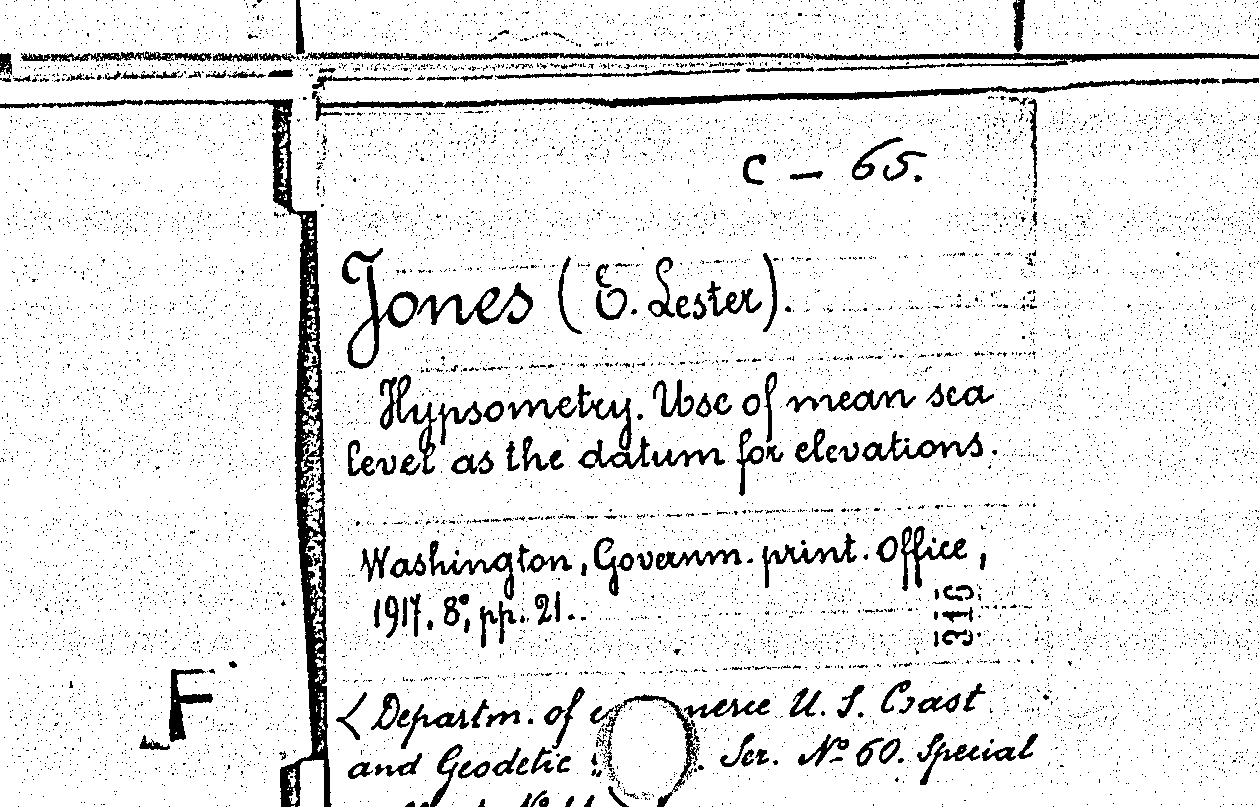 C – 65.
Jones (E. Lester).
Hypsometry. Use of mean sea
level as the datum for elevations.
Washington, Governm. print. Office,
1917. 8º, pp. 21..
316
< Departm. of U. S. Coast
and Geodetic Ser. Nº 60. Special
F